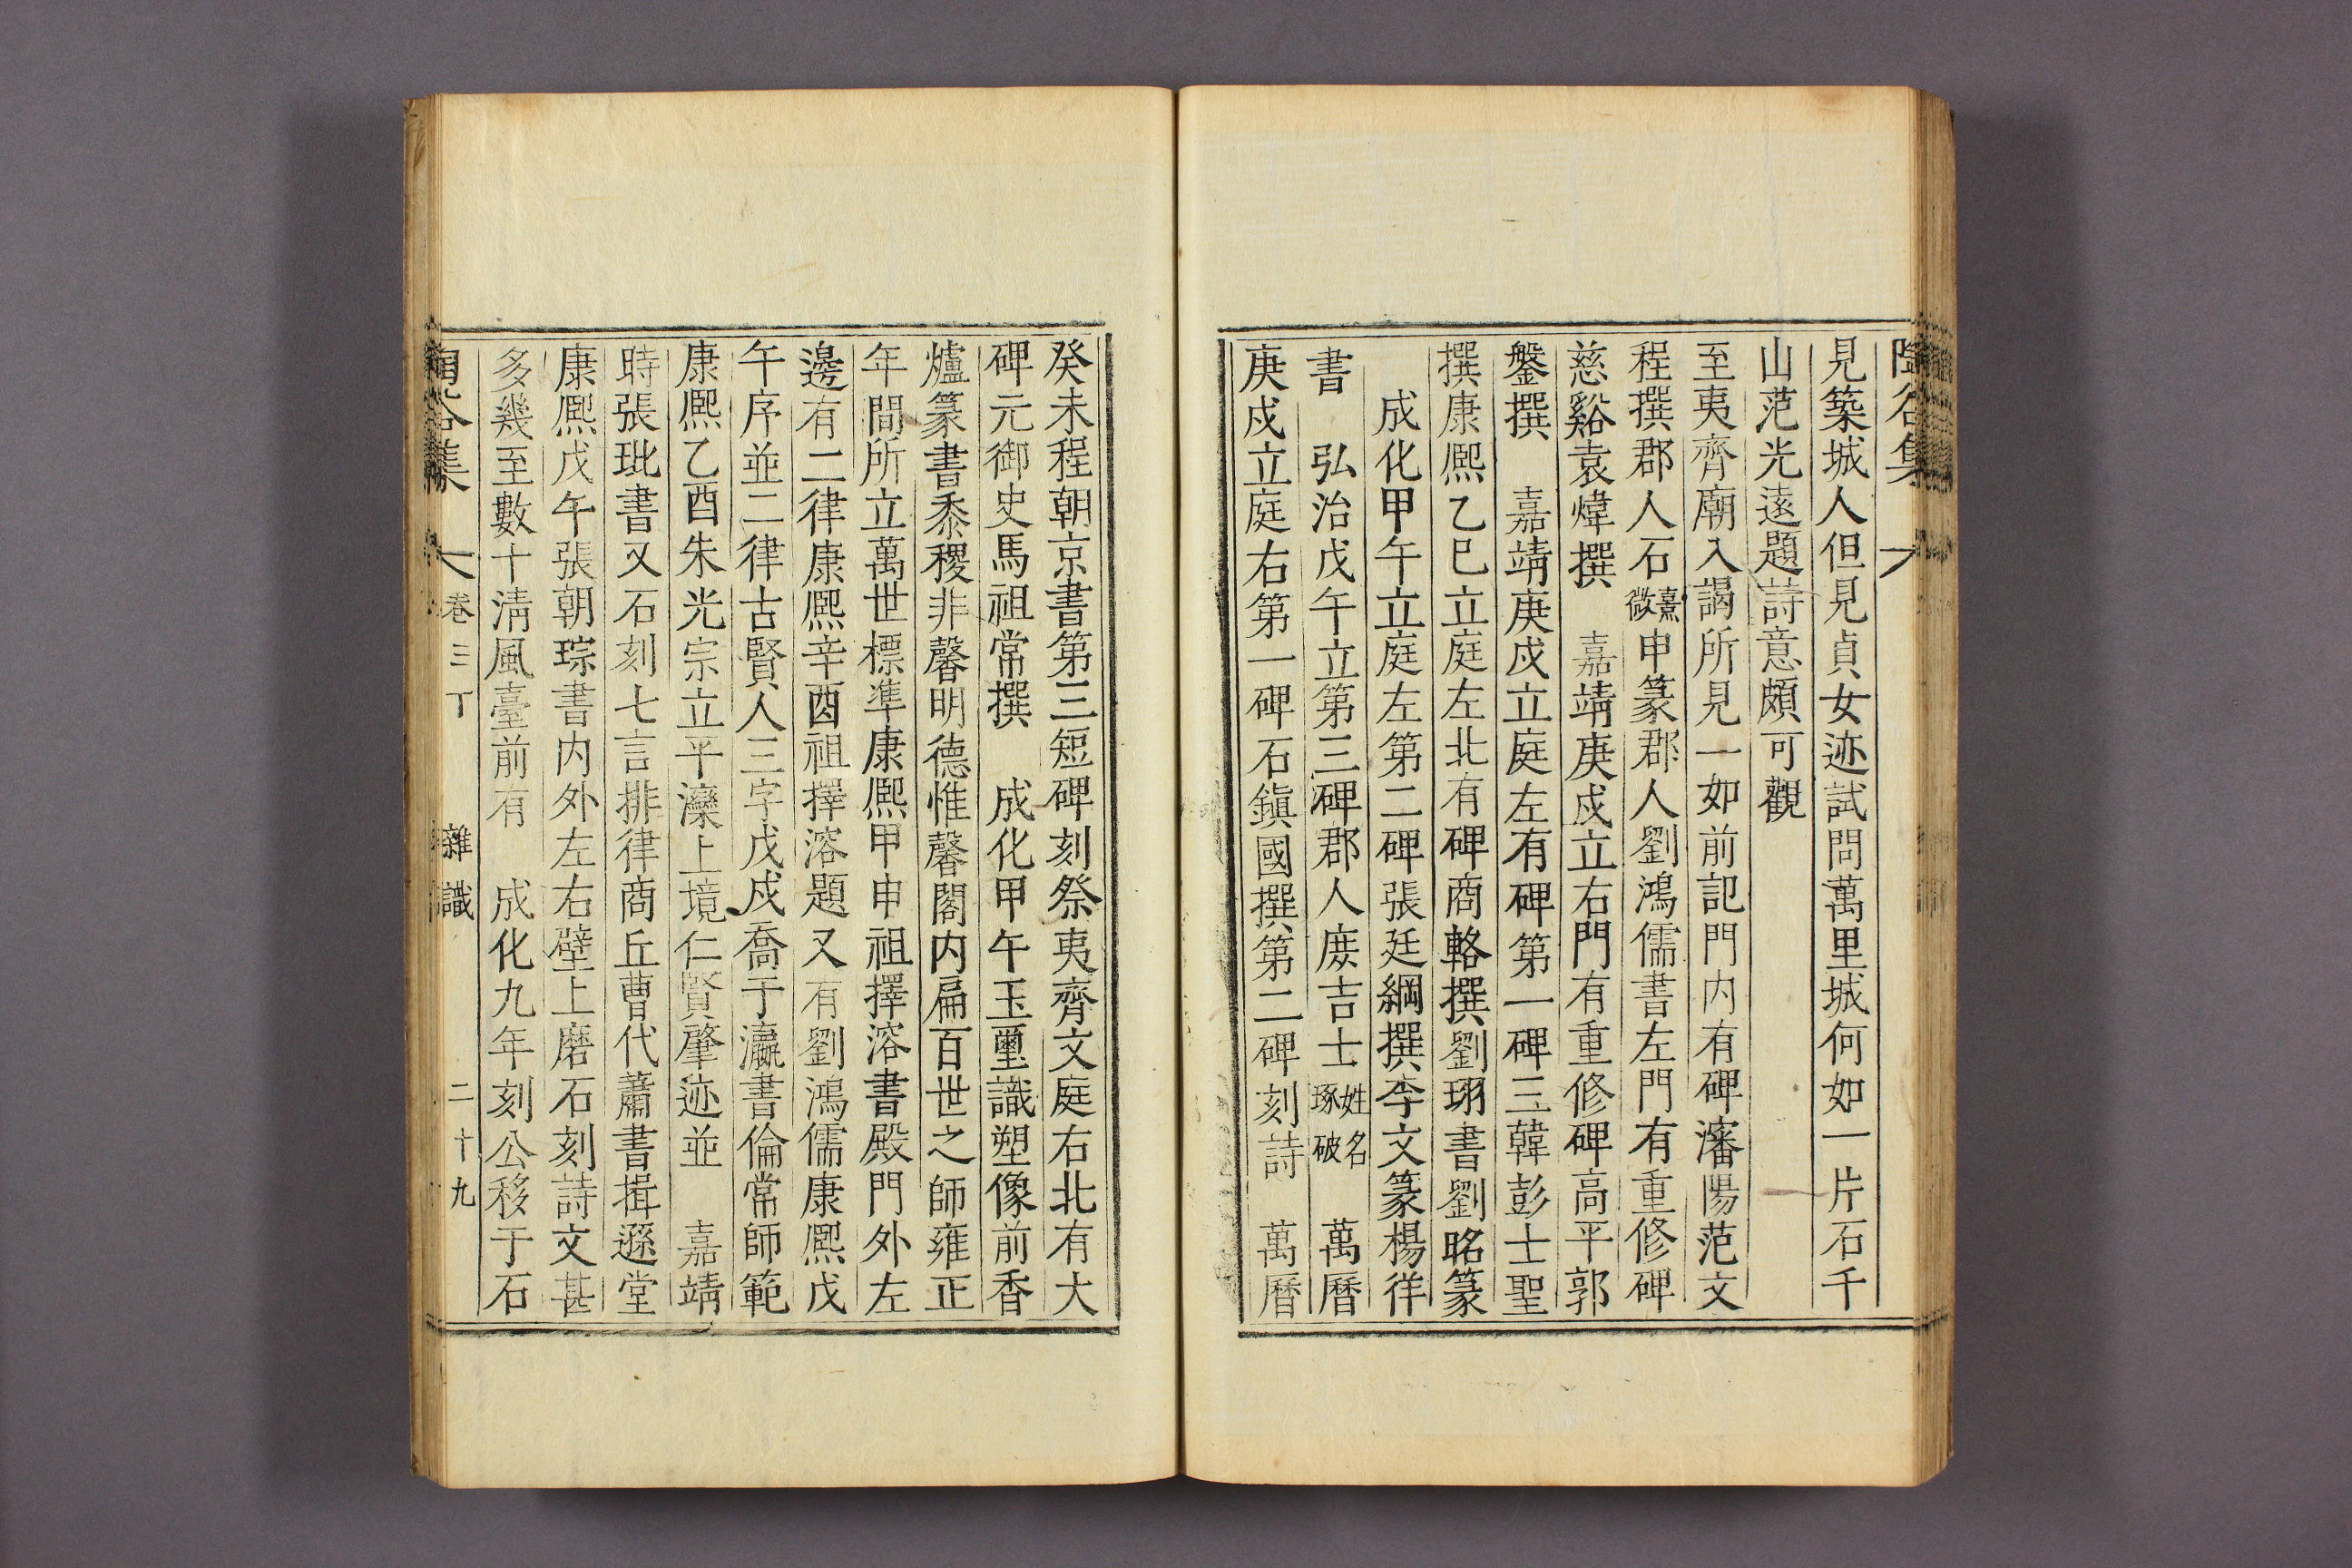 陶谷集
見築城人但見貞女迹試問萬里城何如一片石千
山范光遠題詩意頗可觀
至夷齊廟入謁所見一如前記門內有碑瀋陽范文
程撰郡人石熹微申篆郡人劉鴻儒書左門有重修碑
慈谿袁煒撰　嘉靖庚戌立右門有重修碑高平郭
鋬撰　嘉靖庚戌立庭左有碑第一碑三韓彭士聖
撰康熙乙巳立庭左北有碑商輅撰劉珝書劉昭篆
成化甲午立庭左第二碑張廷綱撰李文篆楊徉
書　弘治戊午立第三碑郡人庶吉士姓名琢破　萬曆
庚戌立庭右第一碑石鎭國撰第二碑刻詩　萬曆
癸未程朝京書第三短碑刻祭夷齊文庭右北有大
碑元御史馬祖常撰　成化甲午玉璽識塑像前香
爐篆書黍稷非馨明德惟馨閣內扁百世之師雍正
年間所立萬世標準康熙甲申祖擇溶書殿門外左
邊有二律康熙辛酉祖擇溶題又有劉鴻儒康熙戊
午序並二律古賢人三字戊戌喬于瀛書倫常師範
康熙乙酉朱光宗立平灤上境仁賢肇迹並　嘉靖
時張玭書又石刻七言排律商丘曹代蕭書揖遜堂
康熙戊午張朝琮書內外左右壁上磨石刻詩文甚
多幾至數十淸風臺前有　成化九年刻公移于石
陶谷集　卷三丁　雜識　二十九